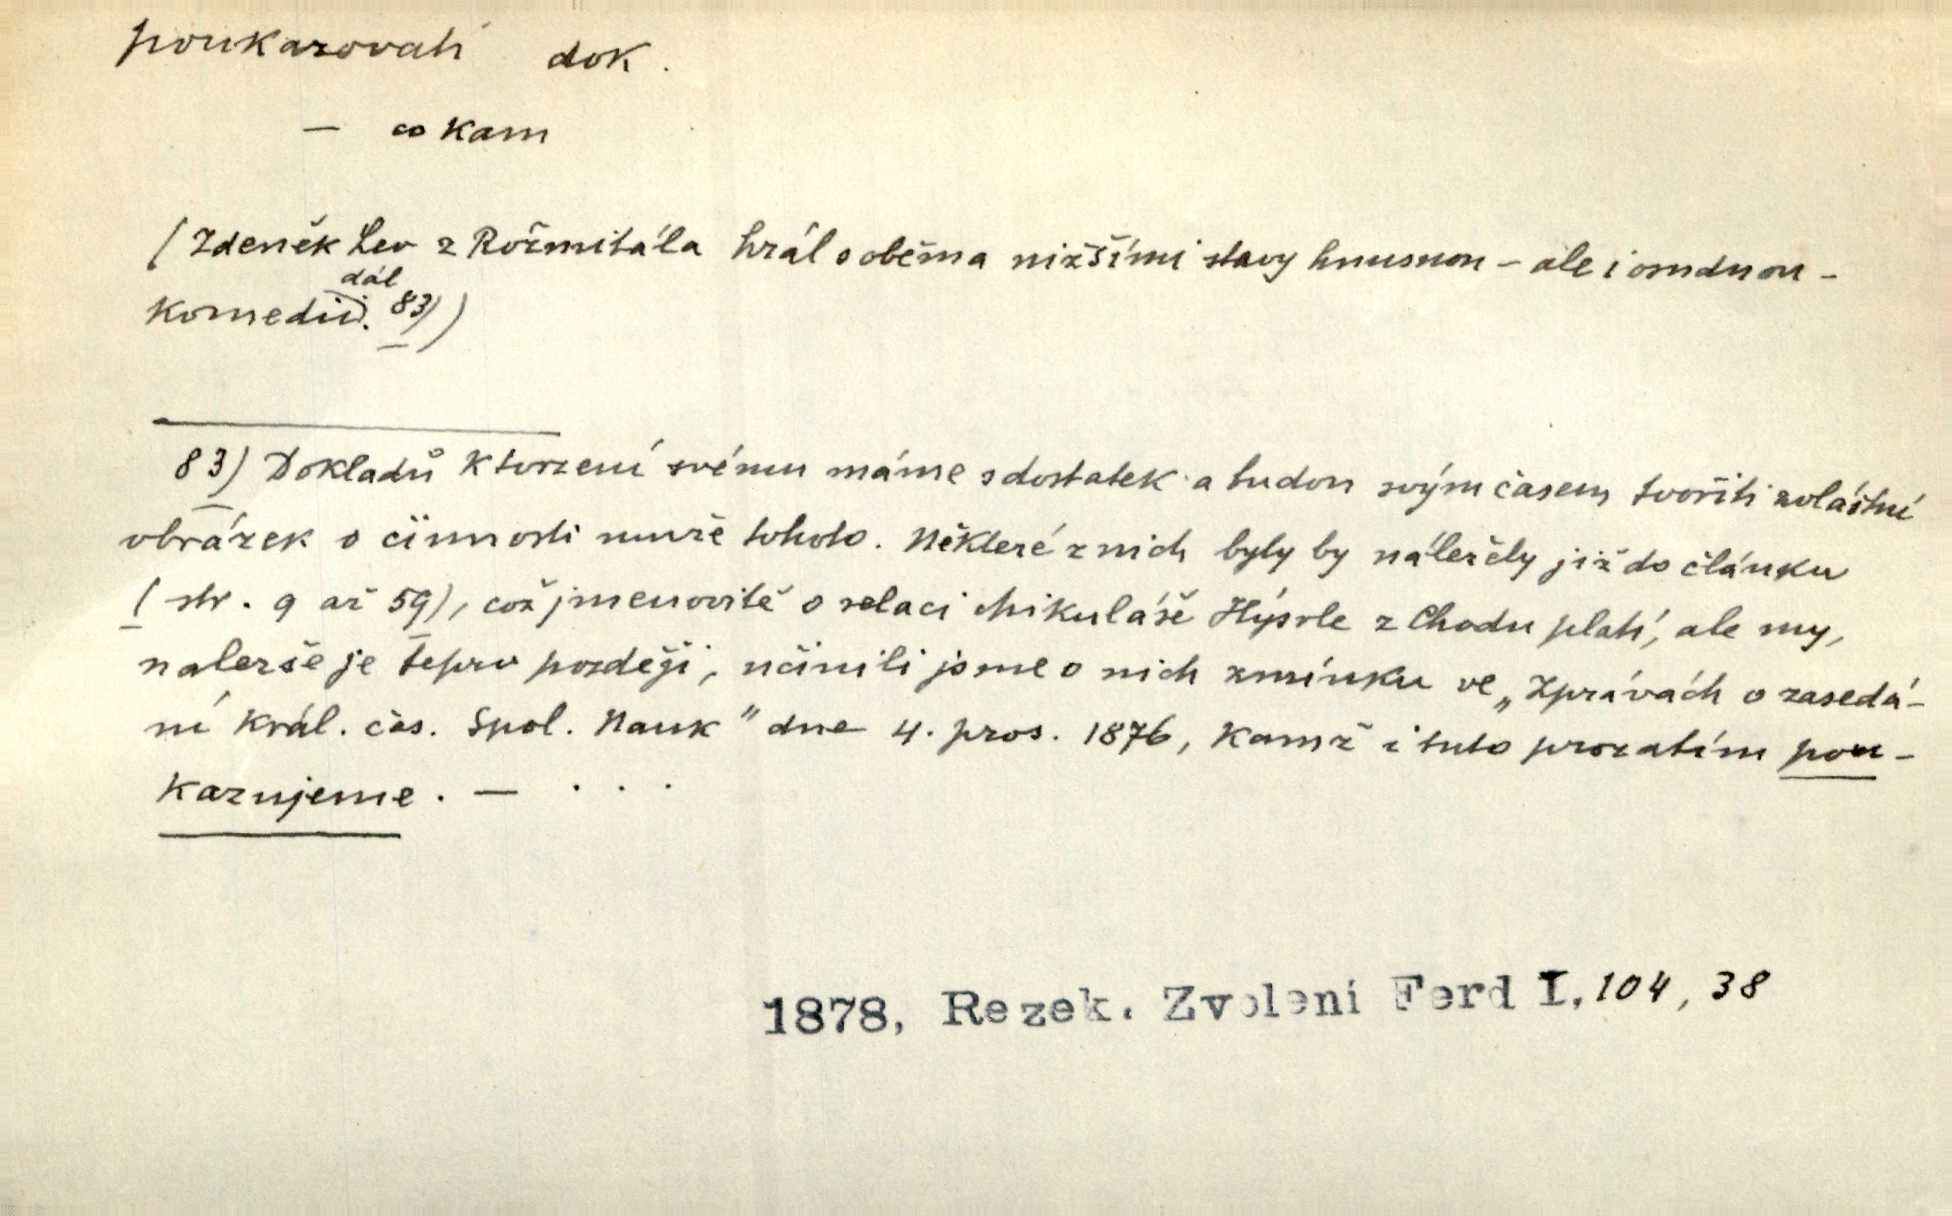 poukazovati dok.
— co kam
(Zdeněk Lev z Rožmitála hrál s oběma nižšími stavy hnusnou – ale i osudnou –
dál
komedii. 83))
83) Dokladů k tvrzení svému máme s dostatek a budou svým časem tvořiti zvláštní
obrázek o činnosti muže tohoto. Některé z nich byly by náležely již do článku
(str. 9 až 59), což jmenovitě o relaci Mikuláše Hýsrle z Chodu platí, ale my,
nalezše je teprv později, učinili jsme o nich zmínku ve „Zprávách o zasedá-
ní král. čes. Spol. Nauk" dne 4. pros. 1876, kamž i tuto prozatím pou-
kazujeme. — . . .
1878, Rezek. Zvolení Ferd I, 104, 38